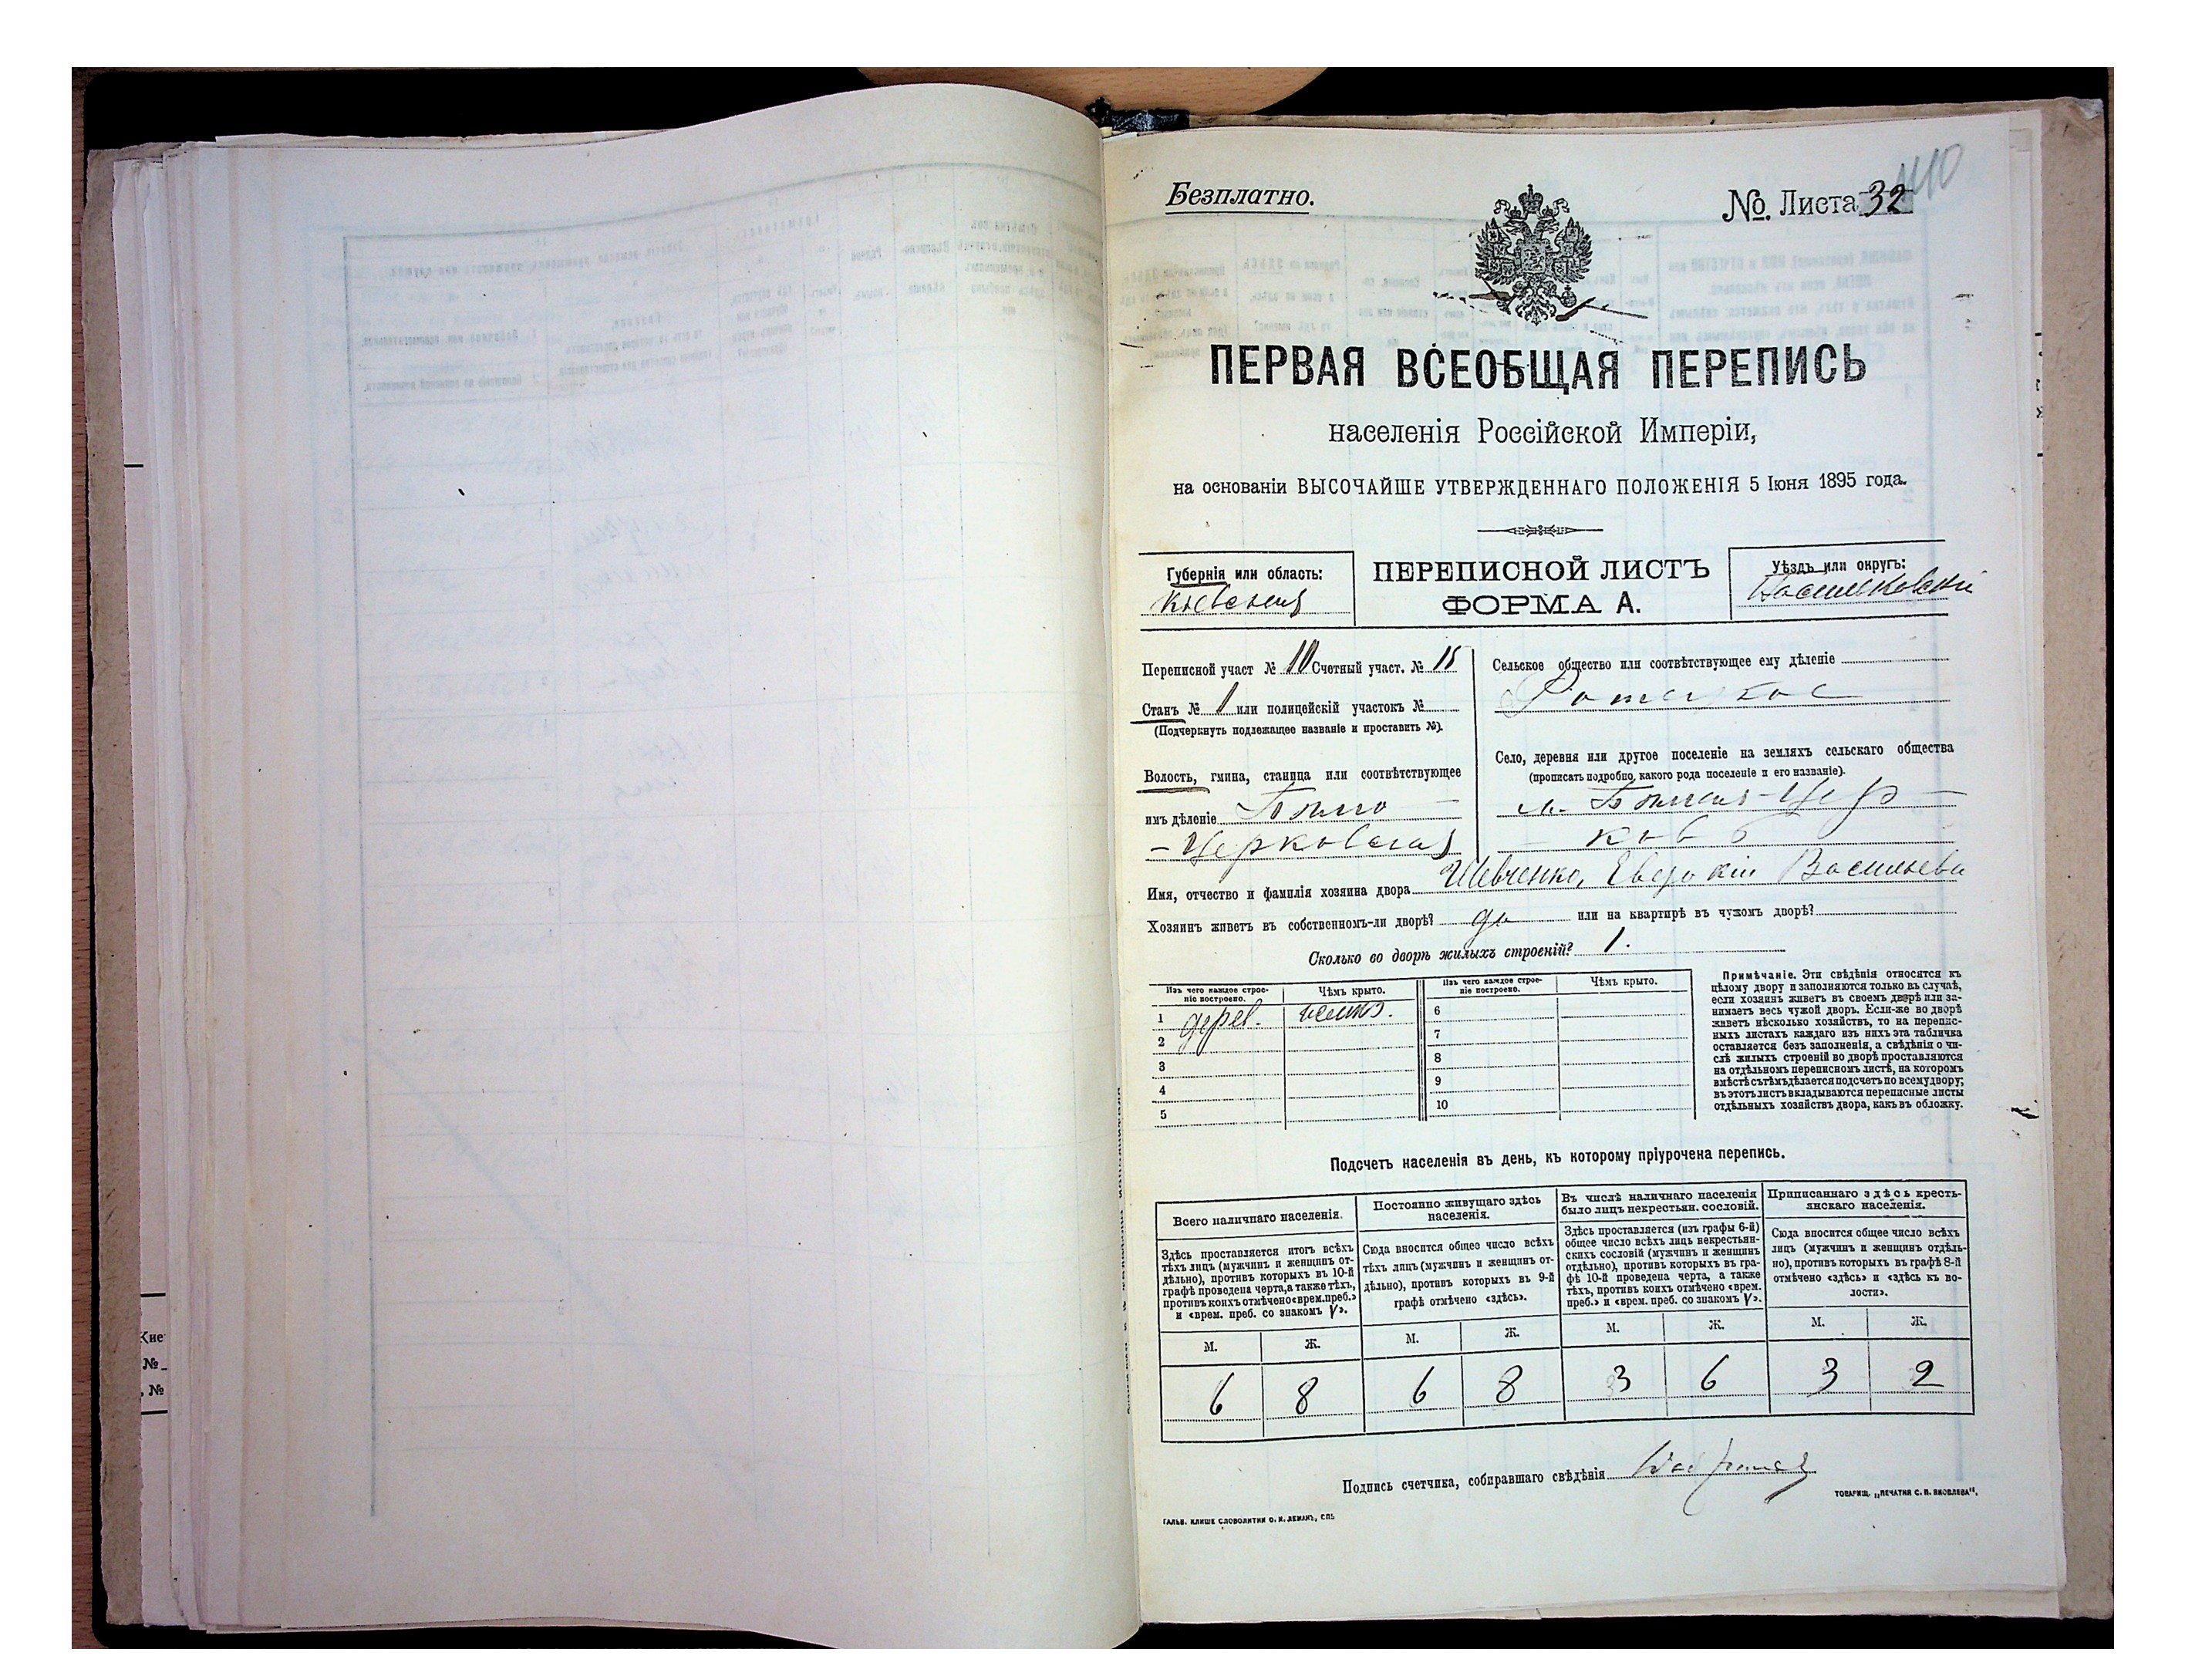 Безплатно.
№. Листа 32
ПЕРВАЯ ВСЕОБЩАЯ ПЕРЕПИСЬ
населенія Россійской Имперіи,
на основаніи ВЫСОЧАЙШЕ УТВЕРЖДЕННАГО ПОЛОЖЕНІЯ 5 Іюня 1895 года.
Губернія или область:
Кіевская
ПЕРЕПИСНОЙ ЛИСТЪ
ФОРМА А.
Уѣздъ или округъ:
Васильковскій
Переписной участ № 10 Счетный участ. №
Станъ № 1 или полицейскій участокъ №
(Подчеркнуть подлежащее названіе и проставить №).
Волость, гмина, станица или соотвѣтствующее
имъ дѣленіе Бѣло
- Церковская
Сельское общество или соотвѣтствующее ему дѣленіе
Село, деревня или другое поселеніе на земляхъ сельскаго общества
(прописать подробно, какого рода поселеніе и его названіе).
м. Бѣлая-Цер-
ковь
Имя, отчество и фамилія хозяина двора Шевченко, Васильевъ
Хозяинъ живетъ въ собственномъ-ли дворѣ? да или на квартирѣ въ чужомъ дворѣ?
Сколько во дворѣ жилыхъ строеній? 1.
Изъ чего каждое строе-
ніе построено.
Чѣмъ крыто.
Изъ чего каждое строе-
ніе построено.
Чѣмъ крыто.
1 дерев. 6
2 7
3 8
4 9
5 10
Примѣчаніе. Эти свѣдѣнія относятся къ
цѣлому двору и заполняются только въ случаѣ,
если хозяинъ живетъ въ своемъ дворѣ или за-
нимаетъ весь чужой дворъ. Если-же во дворѣ
живетъ нѣсколько хозяйствъ, то на перепис-
ныхъ листахъ каждаго изъ нихъ эта табличка
оставляется безъ заполненія, а свѣдѣнія о чи-
слѣ жилыхъ строеній во дворѣ проставляются
на отдѣльномъ переписномъ листѣ, на которомъ
вмѣстѣ съ тѣмъ дѣлается подсчетъ по всему двору;
въ этотъ листъ вкладываются переписные листы
отдѣльныхъ хозяйствъ двора, какъ въ обложку.
Подсчетъ населенія въ день, къ которому пріурочена перепись.
Всего наличнаго населенія.
Здѣсь проставляется итогъ всѣхъ
тѣхъ лицъ (мужчинъ и женщинъ от-
дѣльно), противъ которыхъ въ 10-й
графѣ проведена черта, а также тѣхъ,
противъ коихъ отмѣчено «врем. преб.»
и «врем. преб. со знакомъ V».
Постоянно живущаго здѣсь
населенія.
Сюда вносится общее число всѣхъ
тѣхъ лицъ (мужчинъ и женщинъ от-
дѣльно), противъ которыхъ въ 9-й
графѣ отмѣчено «здѣсь».
Въ числѣ наличнаго населенія
было лицъ некрестьян. сословій.
Здѣсь проставляется (изъ графы 6-й)
общее число всѣхъ лицъ некрестьян-
скихъ сословій (мужчинъ и женщинъ
отдѣльно), противъ которыхъ въ гра-
фѣ 10-й проведена черта, а также
тѣхъ, противъ коихъ отмѣчено «врем.
преб.» и «врем. преб. со знакомъ V».
Приписаннаго здѣсь кресть-
янскаго населенія.
Сюда вносится общее число всѣхъ
лицъ (мужчинъ и женщинъ отдѣль-
но), противъ которыхъ въ графѣ 8-й
отмѣчено «здѣсь» и «здѣсь къ во-
лости».
М. Ж. М. Ж. М. Ж. М. Ж.
6 8 6 8 3 6 3 2
Подпись счетчика, собиравшаго свѣдѣнія
ГАЛЬВ. КЛИШЕ СЛОВОЛИТНИ О. И. ЛЕМАНЪ, СПБ
ТОВАРИЩ. „ПЕЧАТНЯ С. П. ЯКОВЛЕВА“.